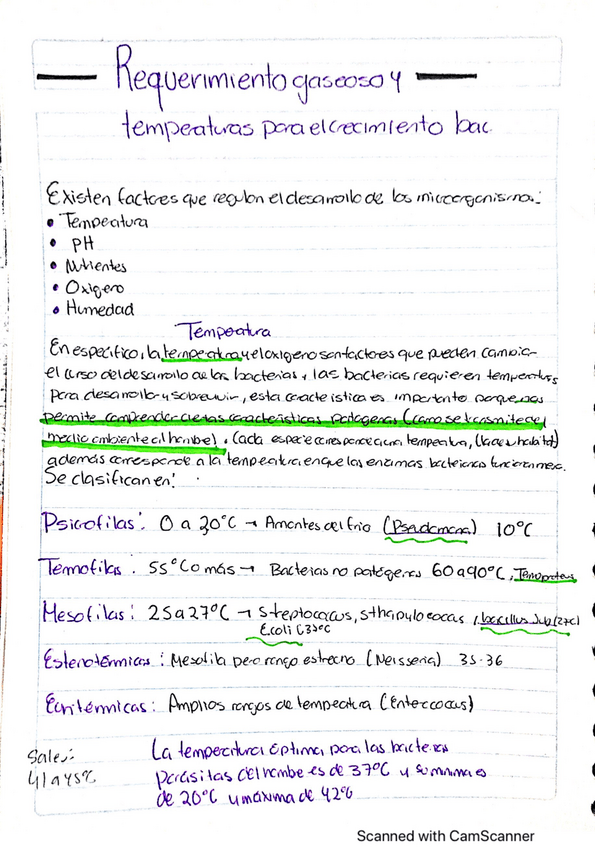 Requerimiento gaseoso y
temperaturas para el crecimiento bac.
Existen factores que regulan el desarrollo de los microorganismos:
• Temperatura
• PH
• Nutrientes
• Oxigeno
• Humedad
Temperatura
En especifico, la temperatura y el oxigeno son factores que pueden cambiar
el curso del desarrollo de las bacterias, las bacterias requieren temperaturas
para desarrollo y sobrevivir, esta caracteristica es importante porque nos
permite comprender ciertas caracteristicas patogenas (como se transmite del
medio ambiente al hombre). Cada especie corresponde a una temperatura, (la de su habitat)
además corresponde a la temperatura en que las enzimas bacterianas funcionan mejor.
Se clasifican en:
Psicrofilas: 0 a 20°C → Amantes del frio (Pseudomona) 10°C
Termofilas: 55°C o más → Bacterias no patógenas 60 a 90°C,
Mesofilas: 25 a 27°C → Streptococcus, sthapylococcus, bacillus sub (27c)
E.coli (35°C
Estenotérmicas: Mesofila pero rango estrecho (Neisseria) 35-36
Euritérmicas: Amplios rangos de temperatura (Enterococcus)
Sales:
41 a 45°C
La temperatura óptima para las bacterias
parásitas del hombre es de 37°C y su minima es
de 20°C y máxima de 42°C
Scanned with CamScanner